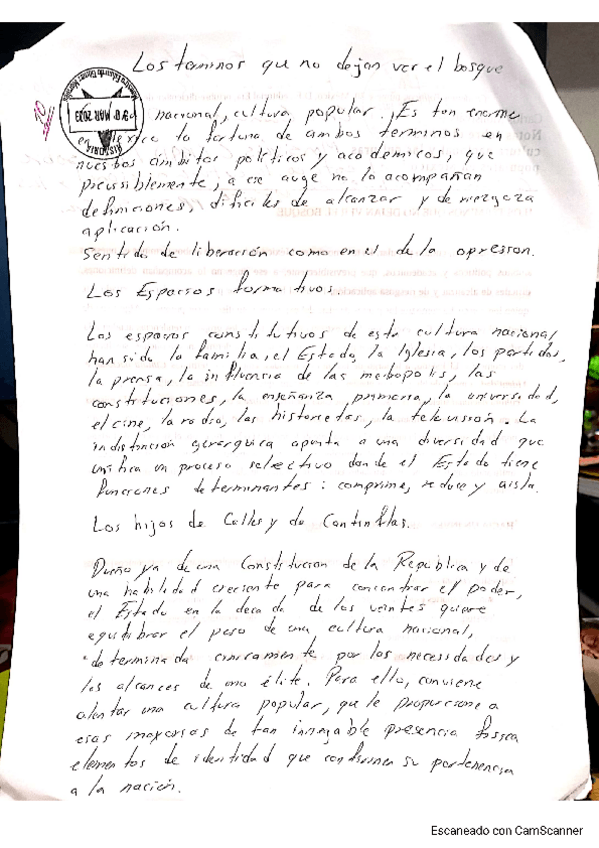 Los terminos que no dejan ver el bosque
nacional, cultura popular. ¡Es tan enorme
en México la fortuna de ambos terminos en
nuestros ámbitos políticos y academicos, que
a ese auge no lo acompañan
definiciones, dificiles de alcanzar y de
aplicación.
Sentido de liberación como en el de la opresion.
Los Espacios formativos.
Los espacios constitutivos de esta cultura nacional
han sido la familia, el Estado, la Iglesia, los partidos,
la prensa, la influencia de las metropolis, las
constituciones, la enseñanza primaria, la universidad,
el cine, la radio, las historietas, la televisión. La
indistinción apunta a una diversidad que
unifica un proceso selectivo donde el Estado tiene
funciones determinantes: comprime, reduce y aisla.
Los hijos de Calles y de Cantinflas.
Dueño ya de una Constitucion de la Republica y de
una habilidad creciente para concentrar el poder,
el Estado en la decada de los veintes quiere
equilibrar el peso de una cultura nacional,
determinada por las necesidades y
los alcances de una élite. Para ello, conviene
alentar una cultura popular, que le proporcione a
esas mayorias de tan innegable presencia
elementos de identidad que su pertenencia
a la nación.
HISTORIA
MAR 2023
Escaneado con CamScanner